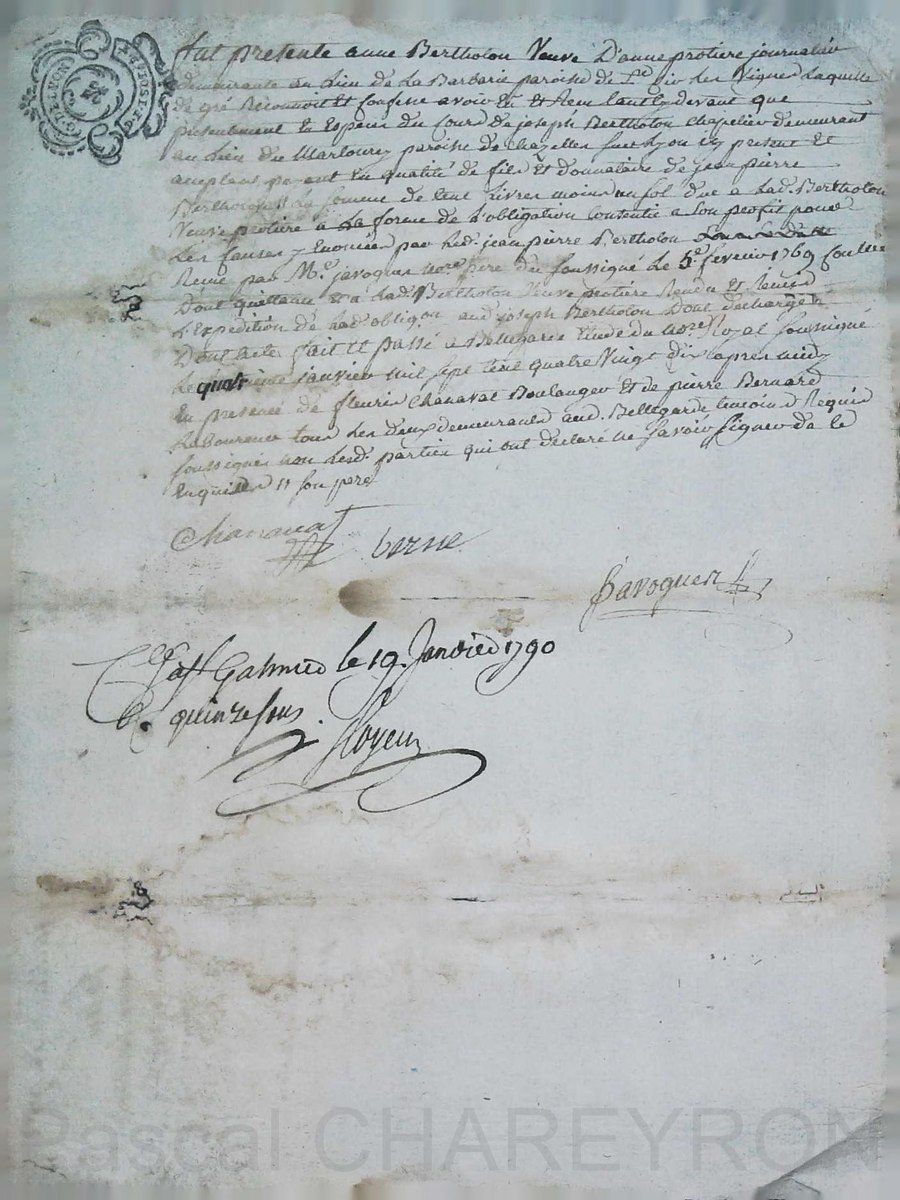 G. DE LYON
Fut presente anne Bertholon Veuve D'anne protiere journaliere
demeurante au Lieu de La Barbarie paroisse de St Cir Les Vignes Laquelle
de gré Reconnoit et Confesse avoir Eu et Recu tant cy devant que
presentement En Especes du Cours de joseph Bertholon chapelier demeurant
au Lieu du Marloure paroisse de chazelles sur Lyon icy present et
acceptant payant En qualité de fils Et donnataire de jean pierre
Bertholon La somme de Cent Livres moins un sol due a Lad. Bertholon
Veuve protiere a La forme de L'obligation Contentie a son profit pour
Les Causes y Enoncées par Led. jean pierre Bertholon
Reçue par Me javogues nore pere du soussigné Le 5e fevrier 1769
Dont quittance Et a Lad. Bertholon Veuve protiere Rendu et Remis
L'Expedition de Lad. obligon aud. joseph Bertholon Dont decharge
Dont acte fait Et passé a Bellegarde Etude du nore Royal soussigné
Le quatorzieme janvier mil sept Cent quatre Vingt dix apres midy
En presence de fleurie Chanavat Boulanger Et de pierre Bernard
Laboureur tous Les deux demeurants aud. Bellegarde temoins Requis
soussignés non Lesd. parties qui ont declaré ne savoir signer de ce
Enquises Et sommées
Chanavat
Javogues
Clle a St Galmier le 19. Janvier 1790
R. quinze sous.
Pascal CHAREYRON